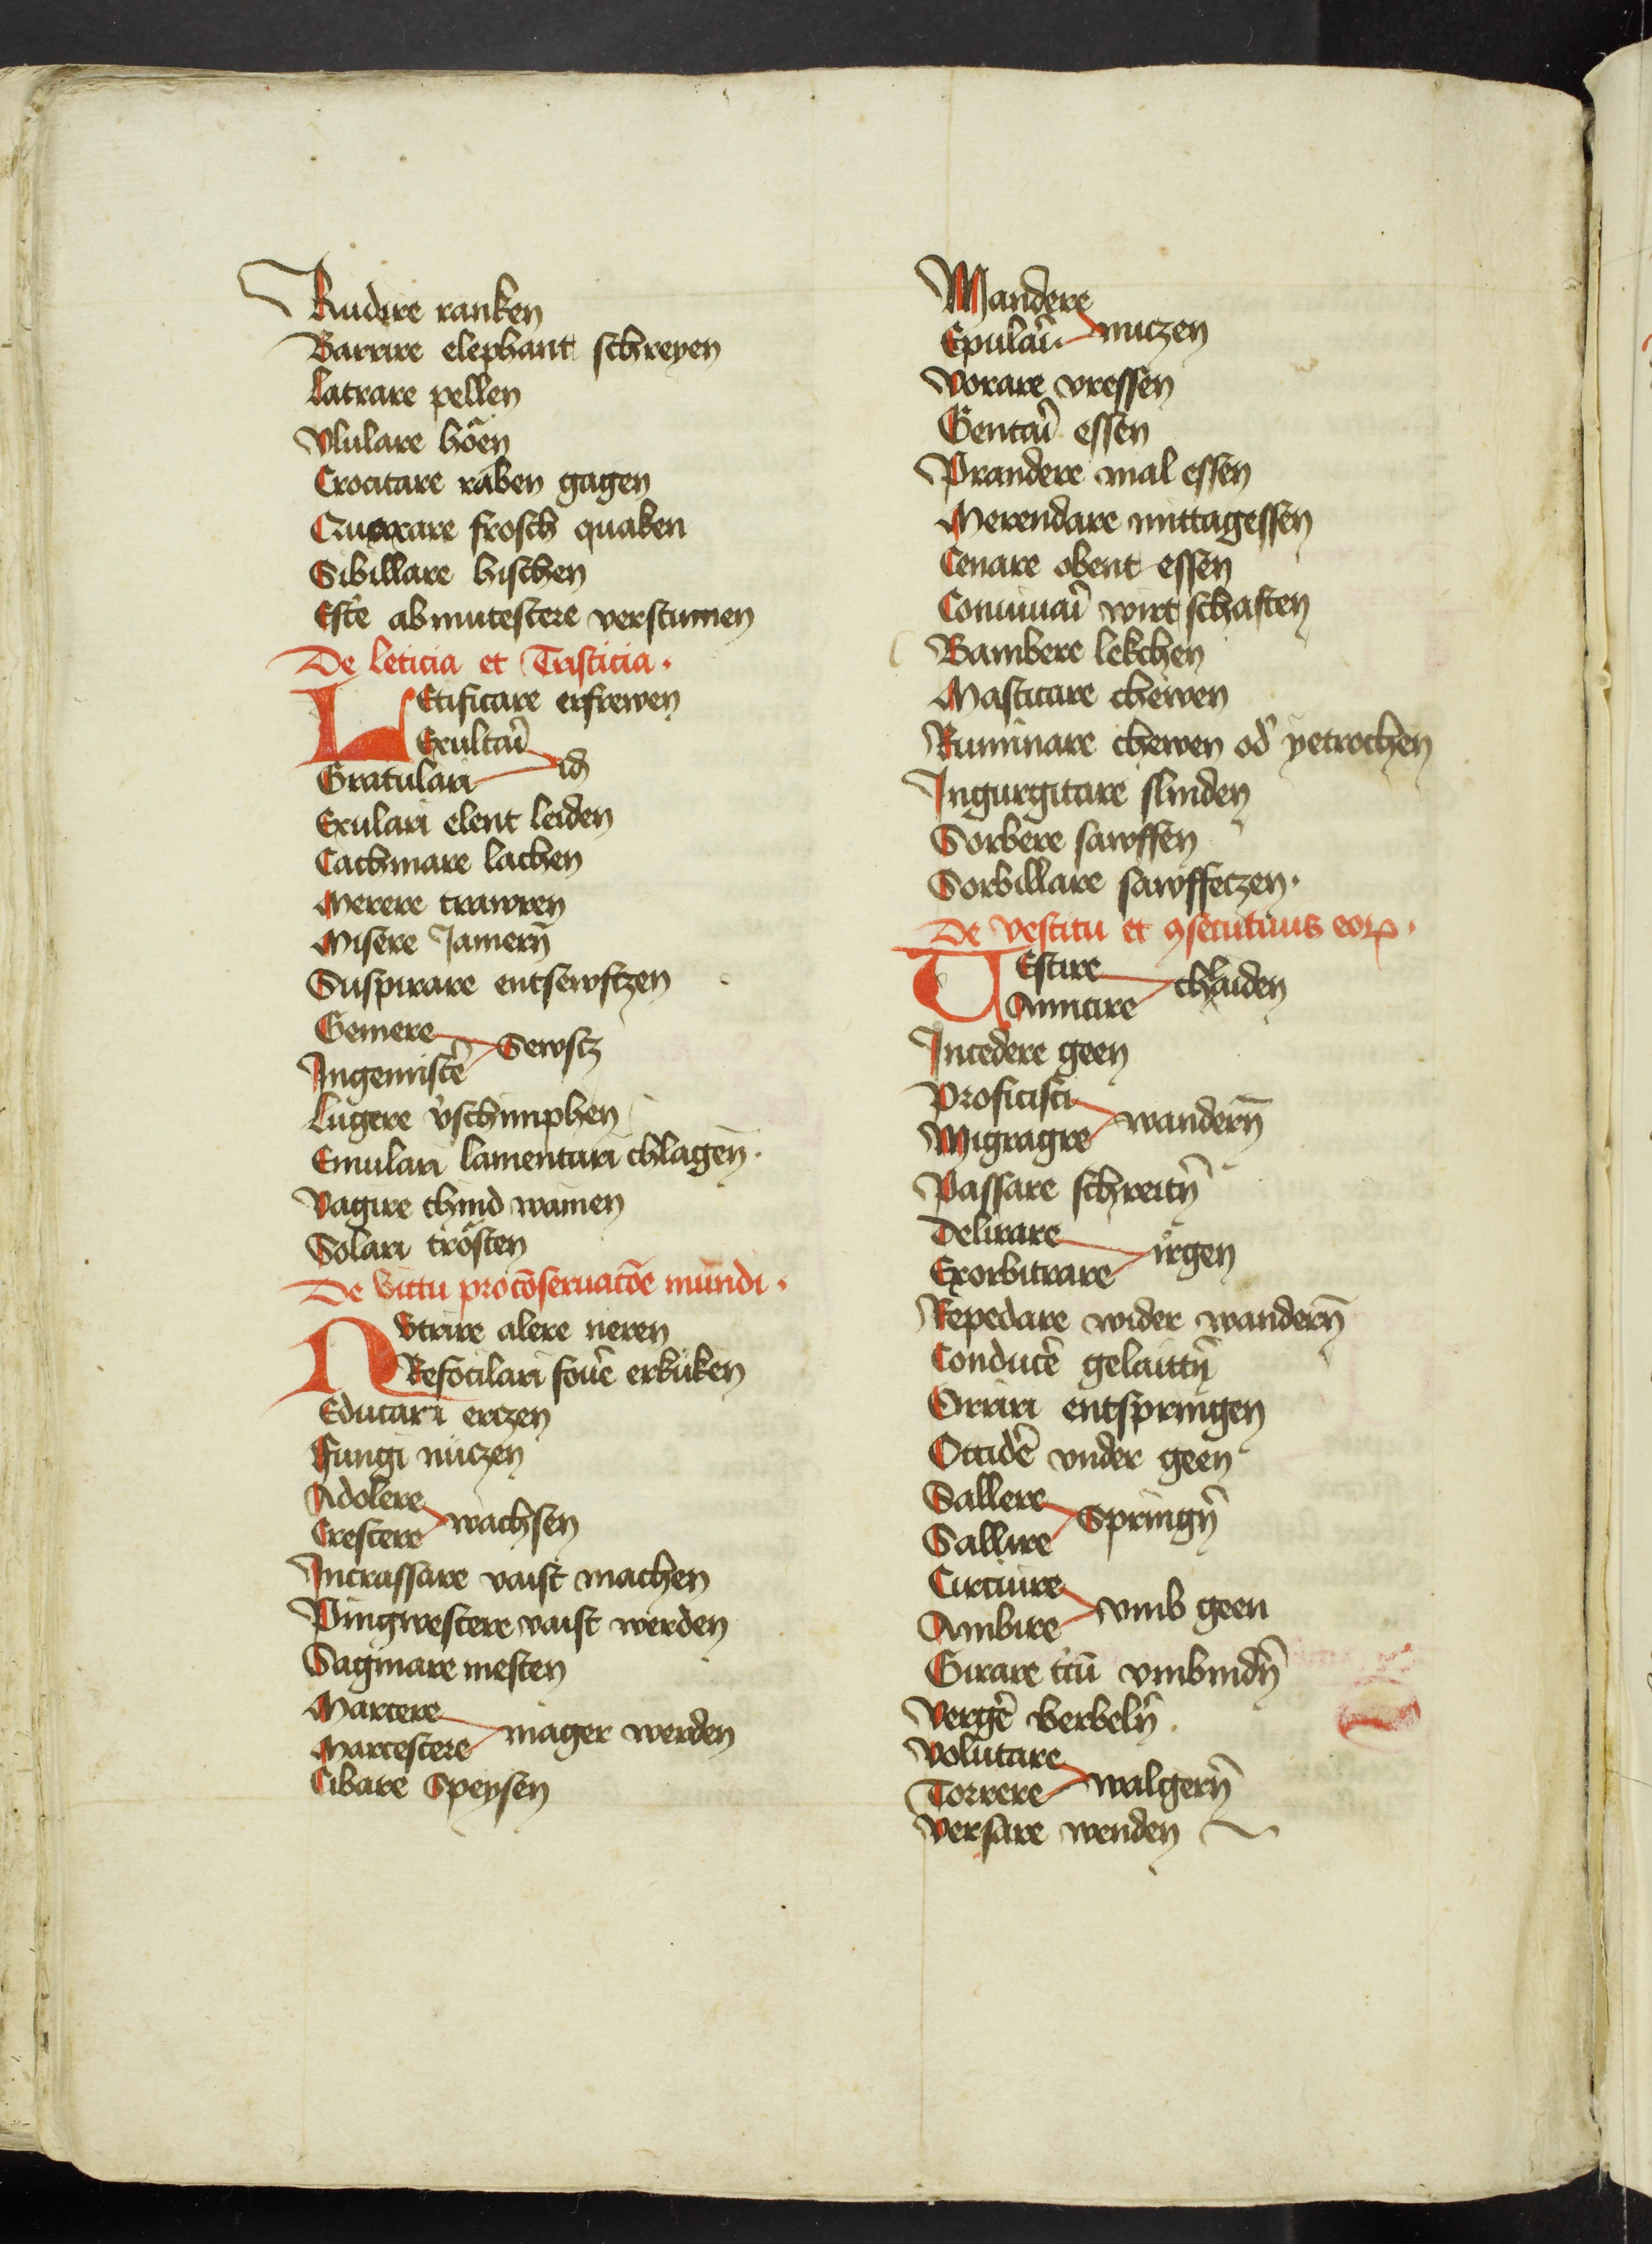 Rudire ranken
Barrire elephant schreyen
Latrare pellen
Vlulare höen
Crocitare raben gagen
Quaxare frosch quaken
Sibillare hischen
Est'e abmutescere verstumen
De leticia et Tristicia.
LEtificare erfrewen
Exultari
Gratulari id
Exulari elent leiden
Cachinare lachen
Merere trawren
Misere Jamern̄
Suspirare entsewftzen
Gemere Sewftz
Ingemiscē
Lugere v̓schimphen
Emulari lamentari chlagen̄.
Vagire chind wainen
Solari trösten
De victu pro cōseruacōe mundi.
NVtrire alere neren
Refocilari fouē erküken
Educari erczen
Fungi nüczen
Adolere
Crescere wachsen
Incrassare vaist machen
Pingwescere vaist werden
Saginare mesten
Marcere mager werden
Marcescere
Cibare Speysen
Mandere
Epulari nuczen
Vorare vressen
Gentari essen
Prandere mal essen
Merendare mittagessen
Cenare obent essen
Conuiuari wirtschaften
Bambere lekchen
Masticare chewen
Ruminare chewen od' yetrochen
Ingurgitare slinden
Sorbere sawffen
Sorbillare sawffeczen.
De vestitu et ꝯsecutiuis eoꝝ.
VEstire chlaiden
Amicire
Incedere geen
Proficisci wandern̄
Migragre
Passare schreitn̄
Delirare irgen
Exorbitrare
Repedare wider wandern̄
Conducē gelaittn̄
Orriri entspringen
Occidē vnder geen
Sallere Springn̄
Sallire
Circuire vmb geen
Ambire
Girare t'cū vmbindn̄
Vergē berbeln̄
Volutare
Torrere walgern̄
Versare wenden